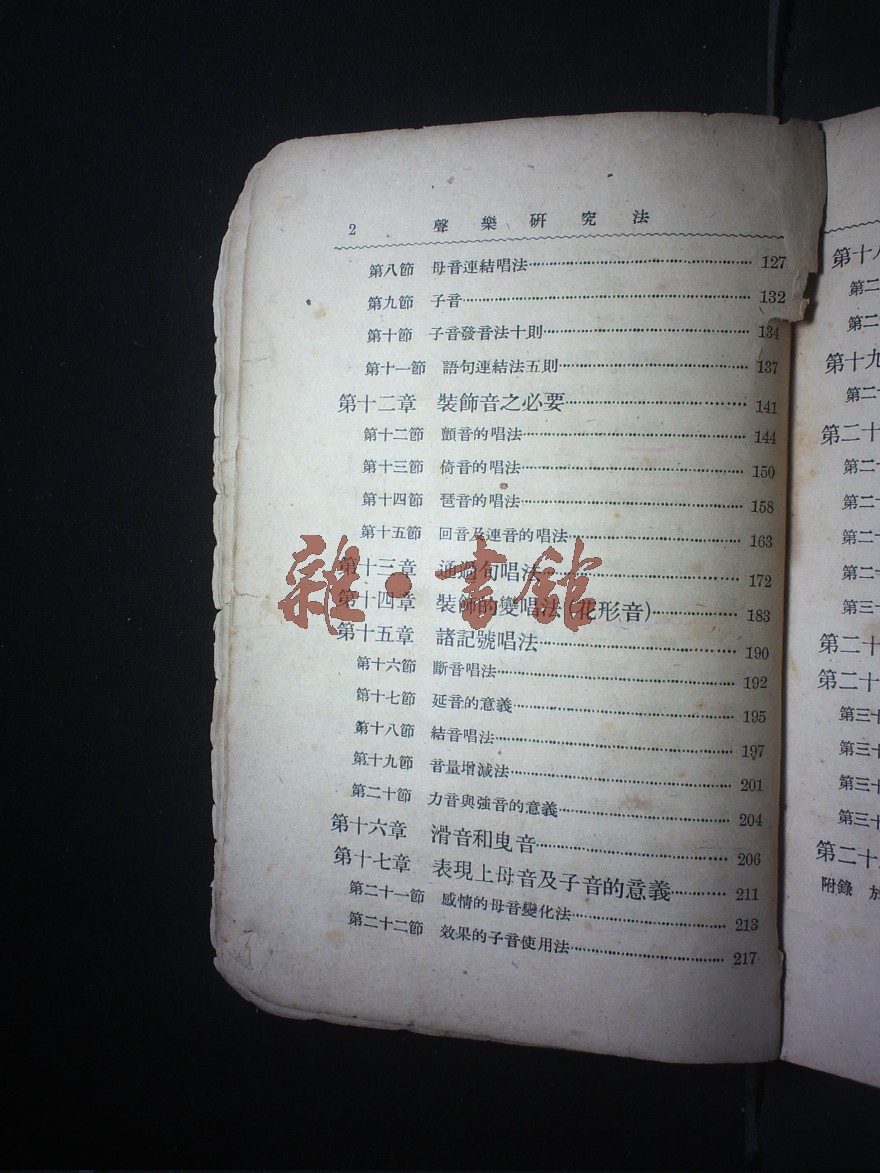 2 聲樂研究法
第八節 母音連結唱法 127
第九節 子音 132
第十節 子音發音法十則 134
第十一節 語句連結法五則 137
第十二章 裝飾音之必要 141
第十二節 顫音的唱法 144
第十三節 倚音的唱法 150
第十四節 琶音的唱法 158
第十五節 回音及連音的唱法 163
第十三章 通過句唱法 172
第十四章 裝飾的變唱法(花形音) 183
第十五章 諸記號唱法 190
第十六節 斷音唱法 192
第十七節 延音的意義 195
第十八節 結音唱法 197
第十九節 音量增減法 201
第二十節 力音與強音的意義 204
第十六章 滑音和曳音 206
第十七章 表現上母音及子音的意義 211
第二十一節 感情的母音變化法 213
第二十二節 效果的子音使用法 217
雜·書館
第十八
第二
第二
第十九
第二十
第二十
第二十
第二十
第二十
第二十
第三十
第二十
第二十
第三十
第三十
第三十
第三十
第二十
附錄